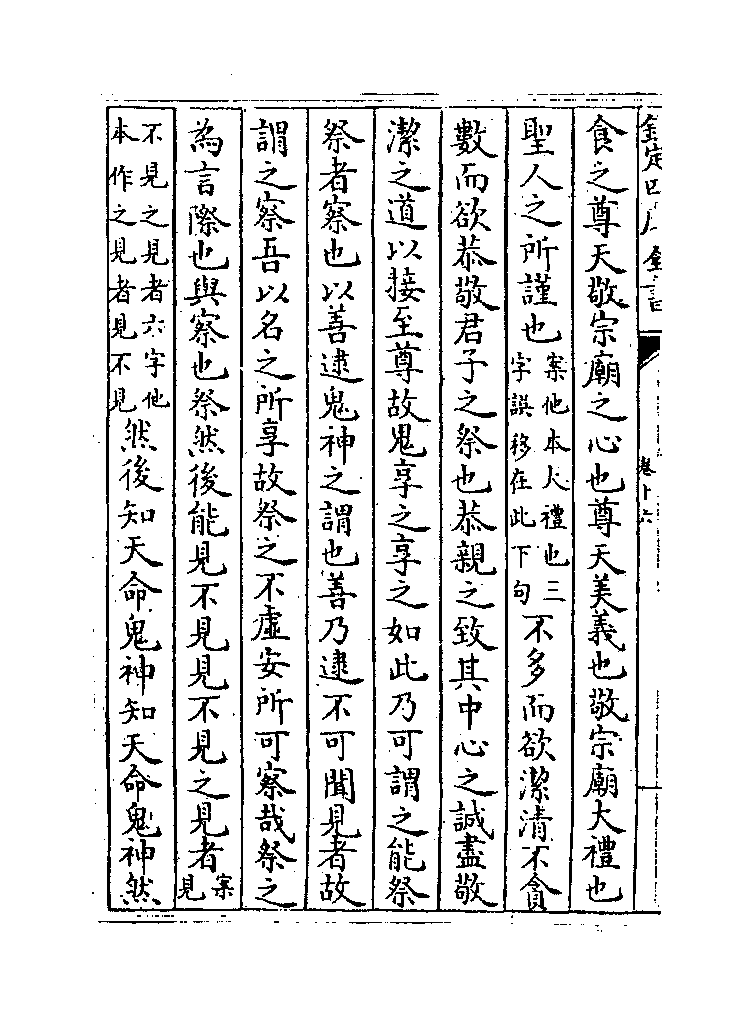 欽定四庫全書
卷十六
食之尊天敬宗廟之心也尊天美義也敬宗廟大禮也
聖人之所謹也案他本大禮也三字誤移在此下句不多而欲潔清不貪
數而欲恭敬君子之祭也恭親之致其中心之誠盡敬
潔之道以接至尊故鬼享之享之如此乃可謂之能祭
祭者察也以善逮鬼神之謂也善乃逮不可聞見者故
謂之察吾以名之所享故祭之不虛安所可察哉祭之
為言際也與察也祭然後能見不見見不見之見者案見
不見之見者六字他本作之見者見不見然後知天命鬼神知天命鬼神然